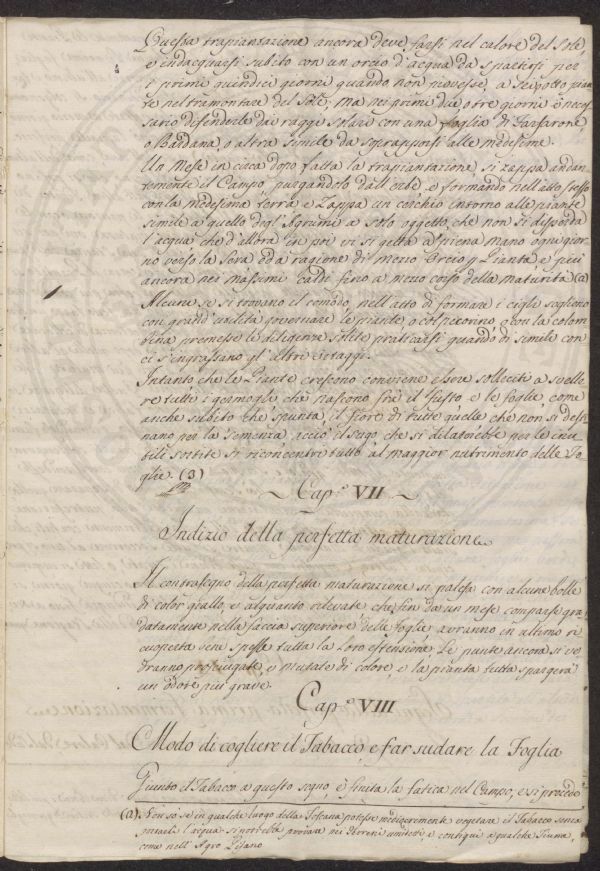 Questa trapiantazione ancora deve farsi nel calore del Sole,
e indacquarsi subito con un orcio d'acqua da spartirsi per
i primi quindici giorni quando non piovesse, a sei, o otto pian
te nel tramontar del Sole; ma nei primi due o tre giorni è neces
sario difenderle dai raggi solari con una foglia di Farfarone
o Bardana, o altra simile da soprapporsi alle medesime.
Un Mese in circa dopo fatta la trapiantazione, si zappa andan
temente il Campo, purgandolo dall'erbe, e formando nell'atto stesso
con la medesima Terra e Zappa un cerchio intorno alle piante
simile a quello degl'Agrumi a solo oggetto, che non si disperda
l'acqua che d'allora in poi vi si getta a piena mano ogni gior
no verso la Sera ed a ragione di mezzo Orcio p Pianta e più
ancora nei massimi caldi fino a mezzo corso della maturità (a)
Alcune se si trovano il comodo, nell'atto di formare i cigli sogliono
con grand'utilità governare le piante o col pecorino, o con la colom
bina premesse le diligenze solite praticarsi quando di simile con
ci s'ingrassano gl'altri ortaggi.
Intanto che le Piante crescono conviene essere solleciti a svelle
re tutti i germogli che nascono frà il fusto e le foglie, come
anche subito che spunta, il fiore di tutte quelle che non si desti
nano per la semenza, acciò il sugo, che si dilaterebbe per le inu
tili sortite si riconcentri tutto al maggior nutrimento delle Fo
glie. (3)
~ Cap.º VII ~
Indizio della perfetta maturazione
Il contrasegno della perfetta maturazione si palesa con alcune bolle
di color giallo, e alquanto rilevate che fin da un mese comparse gra
datamente nella faccia superiore delle foglie avranno in ultimo ri
cuoperta bene spesse tutta la loro estensione. Le punte ancora si ve
dranno prosciugate, e mutate di colore, e la pianta tutta spargerà
un odore più grave.
Cap.º VIII
Modo di cogliere il Tabacco, e far sudare la Foglia
Giunto il Tabacco a questo segno, è finita la fatica nel Campo, e si procede
(a) Non so se in qualche luogo della Toscana potesse mediocremente vegetare il Tabacco senza
portarli l'acqua. Si potrebbe provare nei Terreni umidetti, e contigui a qualche Fiume,
come nell'Agro Pisano